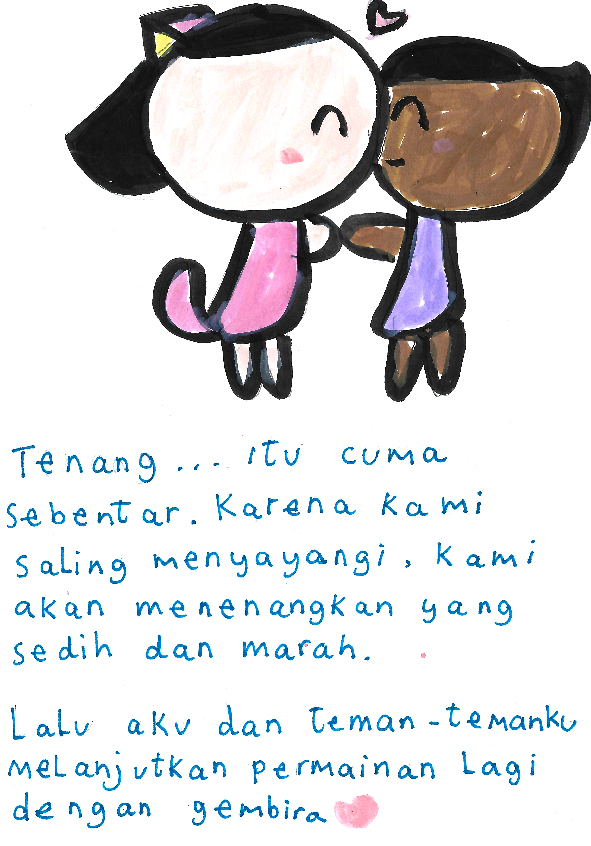 Tenang... itu cuma
sebentar. Karena kami
saling menyayangi, kami
akan menenangkan yang
sedih dan marah.
Lalu aku dan teman-temanku
melanjutkan permainan lagi
dengan gembira